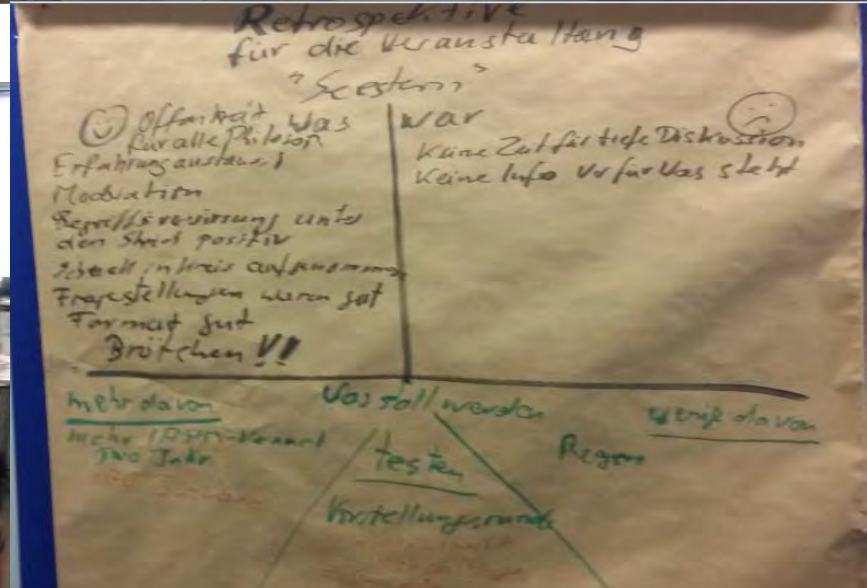 Retrospektive
für die Veranstaltung
"Seestern"
Was war
Offenheit
für alle
Erfahrungsaustausch
Moderation
unter
den Strich positiv
Schnell in Kreis aufgenommen
Fragestellungen waren gut
Format gut
Brötchen !!
Keine Zeit für tiefe Diskussion
Keine Info wofür was steht
Was soll werden
mehr davon
mehr
pro Jahr
testen
Vorstellungsrunde
wenig davon
Regen